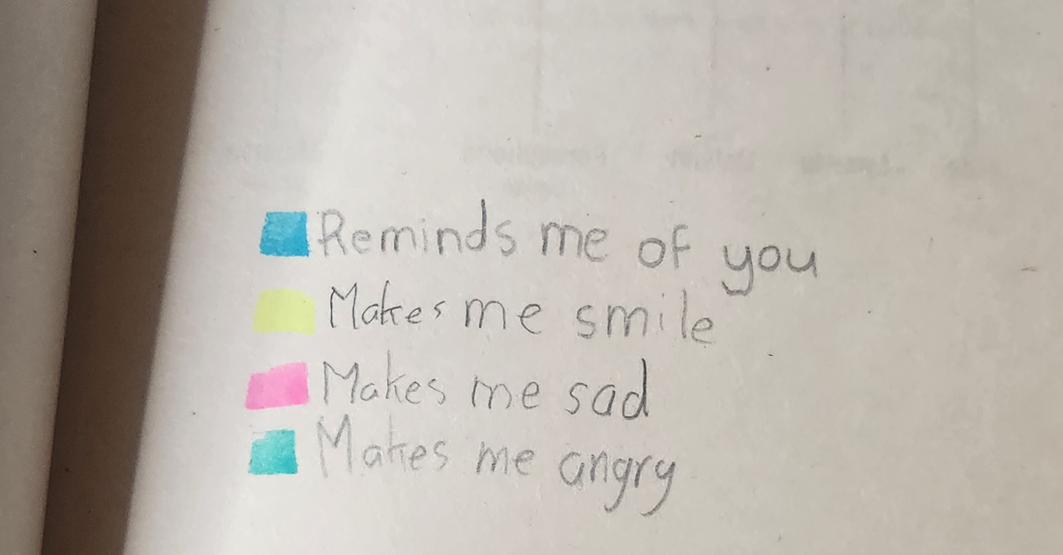 Reminds me of you
Makes me smile
Makes me sad
Makes me angry